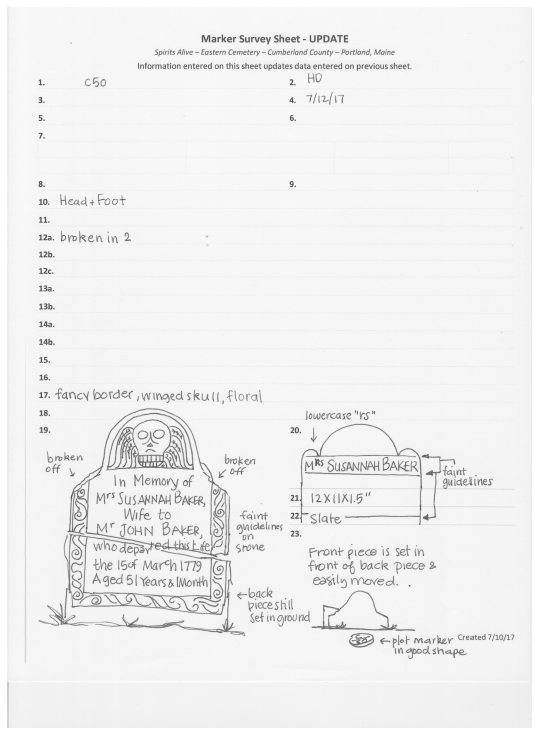 Marker Survey Sheet - UPDATE
Spirits Alive – Eastern Cemetery – Cumberland County – Portland, Maine
Information entered on this sheet updates data entered on previous sheet.
1. C50
2. HD
3.
4. 7/12/17
5.
6.
7.
8.
9.
10. Head + Foot
11.
12a. broken in 2
12b.
12c.
13a.
13b.
14a.
14b.
15.
16.
17. fancy border, winged skull, floral
18.
19.
broken off
broken off
In Memory of
Mrs SUSANNAH BAKER,
Wife to
Mr JOHN BAKER,
who departed this Life
the 15 of March 1779
Aged 51 Years & 1 Month
faint
guidelines
on
stone
←back
piece still
set in ground
lowercase "rs"
20.
MRS SUSANNAH BAKER
faint
guidelines
21. 12 X 11 X 1.5"
22. Slate
23.
Front piece is set in
front of back piece &
easily moved.
←plot marker
in good shape
Created 7/10/17